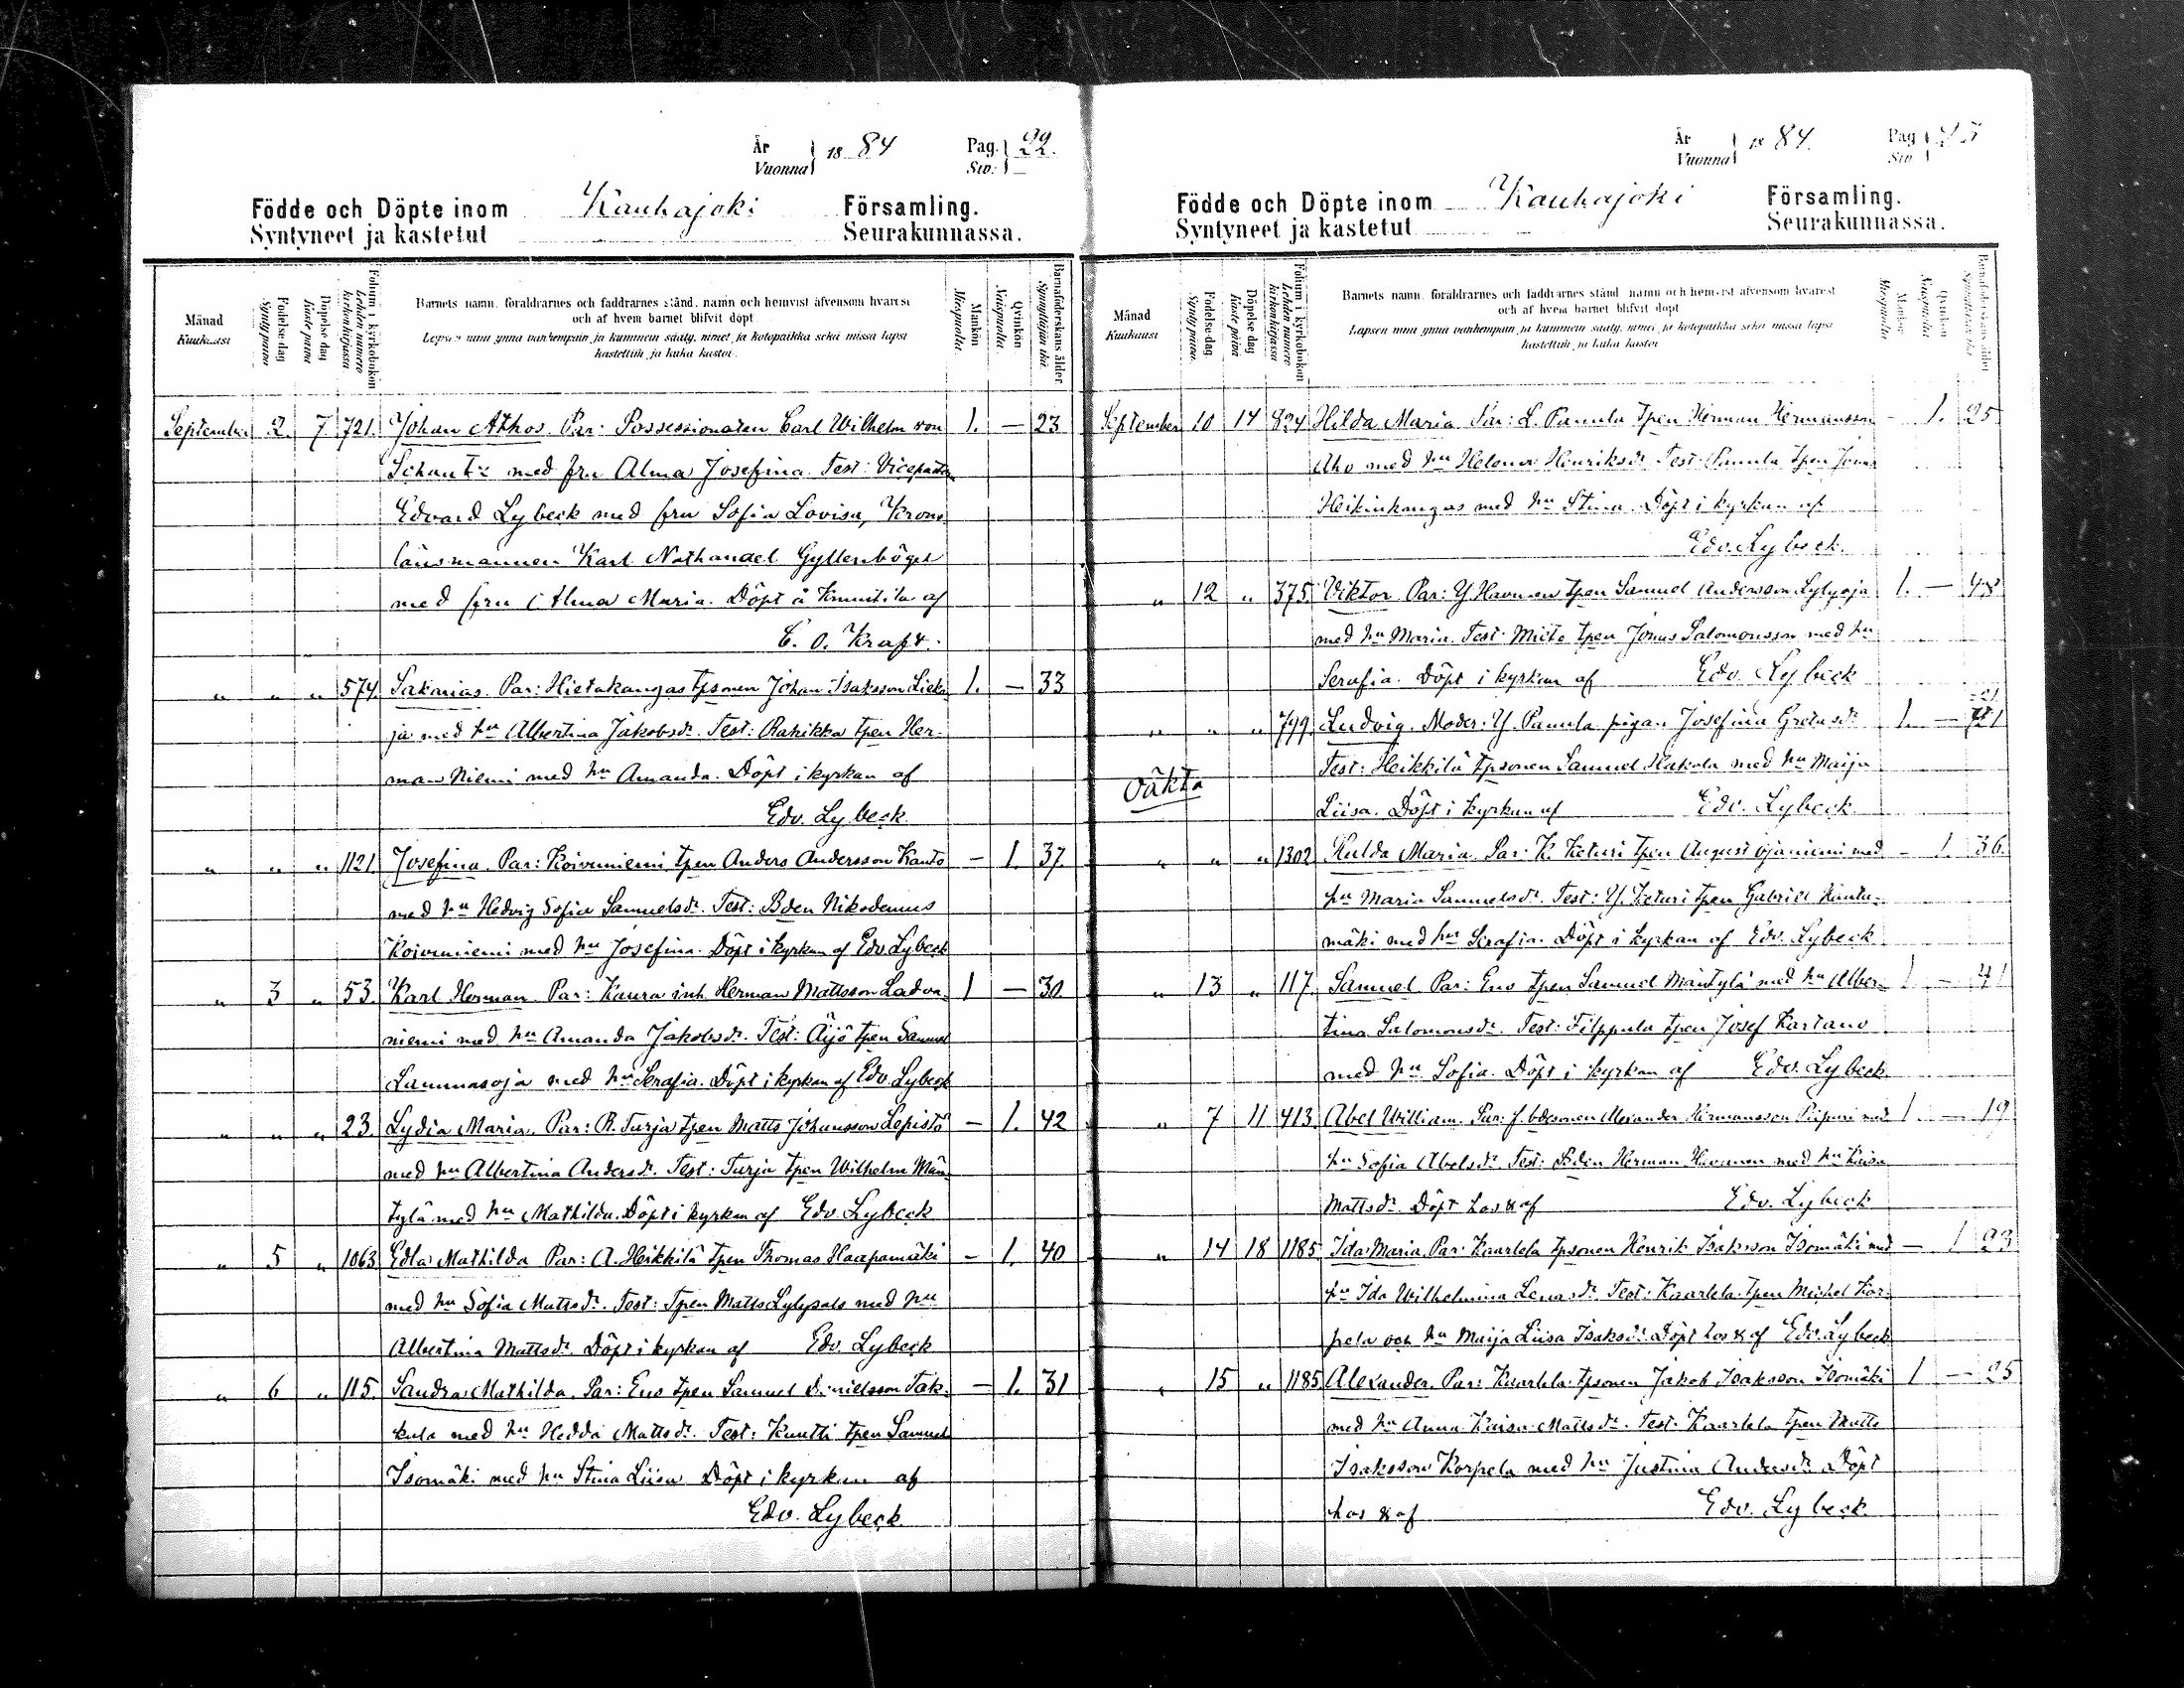 År
Vuonna
1884
Pag.
Siv.
22.
Födde och Döpte inom Kauhajoki Församling.
Syntyneet ja kastetut Seurakunnassa.
Månad
Kuukausi
Födelse-dag
Syntypäivä
Döpelse dag
Kaste päivä
Folium i kyrkoboken
Lehden numero kirkonkirjassa
Barnets namn, föräldrarnes och faddrarnes stånd, namn och hemvist äfvensom hvarest
och af hvem barnet blifvit döpt
Lapsen nimi ynnä vanhempain ja kummein sääty, nimet ja kotopaikka sekä missä lapsi
kastettiin ja kuka kastoi.
Mankön
Miespuolta
Qvinkön
Naispuolta
Barnaföderskans ålder.
Synnyttäjän ikä.
September 2. 7 721. Johan Athos. Par: Possessionaten Carl Wilhelm von 1. — 23
Schantz med fru Alma Josefina. Test: Vicepastor
Edvard Lybeck med fru Sofia Lovisa, Krono
länsmannen Karl Nathanael Gyllenbögel
med fru Alma Maria. Döpt å Knuutila af
C. O. Kraft.
" " " 574. Sakarias. Par: Hietakangas tpsonen Johan Isaksson Lieka 1. — 33
ja med hu Albertina Jakobsdr. Test: Rahikka tpen Her-
man Niemi med hu Amanda. Döpt i kyrkan af
Edv. Lybeck.
" " " 1121. Josefina. Par: Koivuniemi tpen Anders Andersson Kanto — 1. 37
med hu Hedvig Sofia Samuelsdr. Test: Bden Nikodemus
Koivuniemi med hu Josefina. Döpt i kyrkan af Edv. Lybeck
" 3 " 53. Karl Herman. Par: Kaura inh. Herman Mattsson Ladva- 1 — 30
niemi med hu Amanda Jakobsdr. Test: Äijö tpen Samuel
Lammasoja med hu Serafia. Döpt i kyrkan af Edv. Lybeck
" " " 23. Lydia Maria. Par: R. Turja tpen Matts Johansson Lepistö — 1. 42
med hu Albertina Andersdr. Test: Turja tpen Wilhelm Män-
tylä med hu Mathilda. Döpt i kyrkan af Edv. Lybeck
" 5 " 1063 Edla Mathilda Par: A. Heikkilä tpen Thomas Haapamäki — 1. 40
med hu Sofia Mattsdr. Test: Tpen Matts Lylysalo med hu
Albertina Mattsdr. Döpt i kyrkan af Edv. Lybeck
" 6 " 115. Sandra Mathilda. Par: Eno tpen Samuel Danielsson Tak- — 1. 31
kula med hu Hedda Mattsdr. Test: Knutti tpen Samuel
Isomäki med hu Stina Liisa. Döpt i kyrkan af
Edv. Lybeck.
År
Vuonna
1884.
Pag
Siv
Födde och Döpte inom Kauhajoki Församling.
Syntyneet ja kastetut Seurakunnassa.
Månad
Kuukausi
Födelse-dag.
Syntypäivä.
Döpelse dag
Kaste päivä
Folium i kyrkoboken
Lehden numero kirkonkirjassa
Barnets namn, föräldrarnes och faddrarnes stånd namn och hemvist äfvensom hvarest
och af hvem barnet blifvit döpt
Lapsen nimi ynnä vanhempain ja kummein sääty, nimet ja kotopaikka sekä missä lapsi
kastettiin ja kuka kastoi
Mankön
Miespuolta
Qvinkön
Naispuolta
Barnaföderskans ålder
Synnyttäjän ikä
September 10 14 824 Hilda Maria Par: L. Panula tpen Herman Hermansson — 1. 25
Aho med hu Helena Henriksdr. Test: Panula tpen Jonas
Heikinkangas med hu Stina. Döpt i kyrkan af
Edv. Lybeck.
" 12 " 375. Viktor. Par: Y. Havunen tpen Samuel Andersson Lylyoja 1. —
med hu Maria. Test: Mieto tpen Jonas Salomonsson med hu
Serafia. Döpt i kyrkan af Edv. Lybeck
" " " 799. Ludvig. Moder: Y. Panula pigan Josefina Gretasdr. 1. — 21
Test: Heikkilä tpsonen Samuel Hakala med hu Maija
Oäkta
Liisa. Döpt i kyrkan af Edv. Lybeck.
" " " 1302 Hulda Maria. Par: K. Keturi tpen August Ojaniemi med — 1. 36.
hu Maria Samuelsdr. Test: Y. Keturi tpen Gabriel Hintu-
mäki med hu Serafia. Döpt i kyrkan af Edv. Lybeck
" 13 " 117. Samuel Par: Eno tpen Samuel Mäntylä med hu Alber- 1 — 41
tina Salomonsdr. Test: Filppula tpen Josef Kartano
med hu Sofia. Döpt i kyrkan af Edv. Lybeck.
" 7 11 413. Abel William. Par: f. bdesonen Alexander Hermansson Piipari med 1. — 19
hu Sofia Abelsdr. Test: Bden Herman Havunen med hu Kaisa
Mattsdr. Döpt hos & af Edv. Lybeck
" 14 18 1185 Ida Maria. Par: Kaarlela tpsonen Henrik Isaksson Isomäki med — 1 23
hu Ida Wilhelmina Lenasdr. Test: Kaarlela tpen Michel Kor-
pela och hu Maija Liisa Isaksdr. Döpt hos & af Edv. Lybeck
" 15 " 1185 Alexander. Par: Kaarlela tpsonen Jakob Isaksson Isomäki 1 — 25
med hu Anna Kaisa Mattsdr. Test: Kaarlela tpen Matts
Isaksson Korpela med hu Justina Andersdr. Döpt
hos & af Edv. Lybeck.